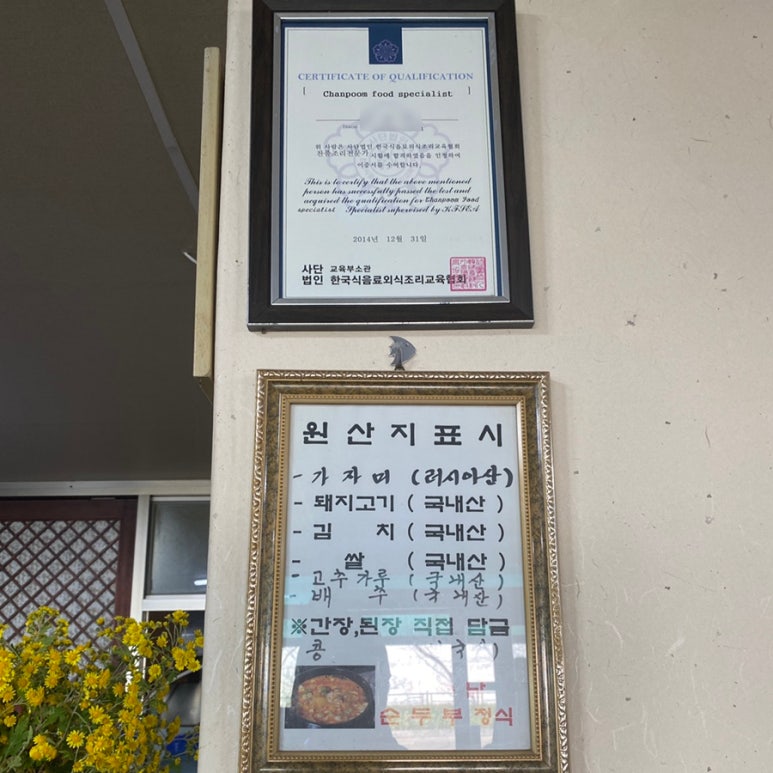 CERTIFICATE OF QUALIFICATION
[ Chanpoom food specialist ]
Name
위 사람은 사단법인 한국식음료외식조리교육협회
찬품조리전문가 시험에 합격하였음을 인정하여
이증서를 수여합니다.
This is to certify that the above mentioned
person has successfully passed the test and
acquired the qualification for Chanpoom food
specialist Specialist supervised by KFSEA
2014년 12월 31일
사단 교육부소관
법인 한국식음료외식조리교육협회
원산지표시
- 가자미 (러시아산)
- 돼지고기 (국내산)
- 김 치 (국내산)
- 쌀 (국내산)
- 고추가루 (국내산)
- 배 추 (국내산)
※간장,된장 직접 담금
콩
순두부정식